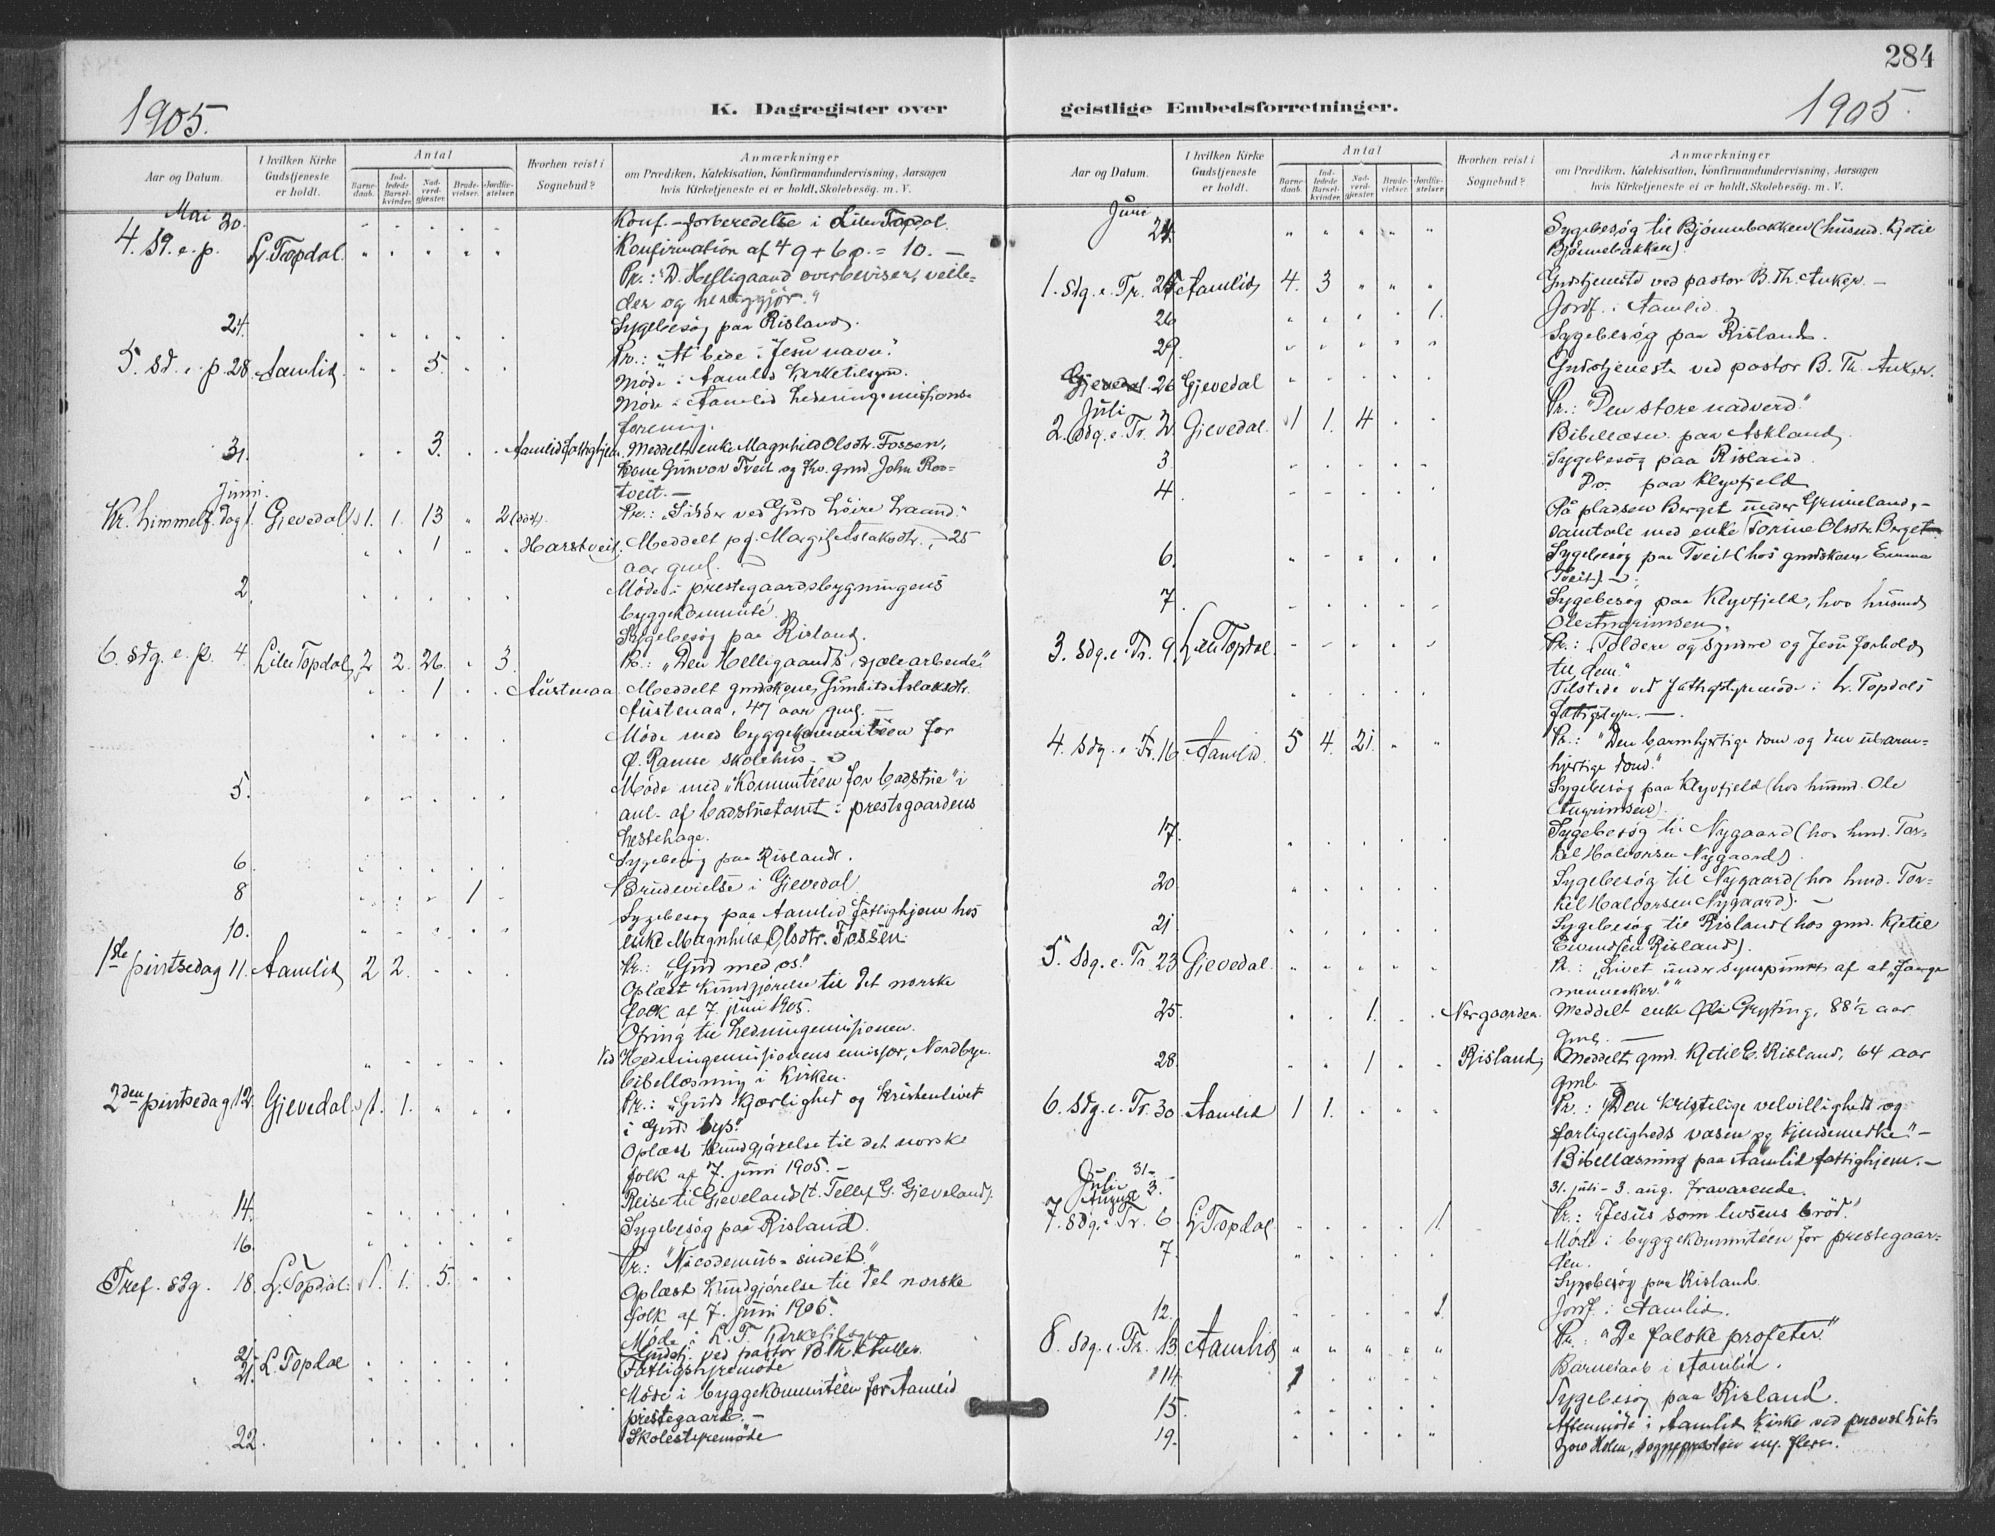 284
1905.
K. Dagregister over
geistlige Embedsforretninger.
1905.
Aar og Datum.
I hvilken Kirke Gudstjeneste er holdt.
Antal
Barne-daab.
Ind-ledede Barsel-kvinder.
Nad-verd-gjester.
Brude-vielser.
Jordfæ-stelser.
Hvorhen reist i Sognebud?
Anmærkninger
om Prædiken, Katekisation, Konfirmandundervisning, Aarsagen
hvis Kirketjeneste ei er holdt, Skolebesøg. m. V.
Mai 20. Konf.-forberedelse i Lille Topdal.
4. Sg. e. p. L. Topdal. Konfirmation af 4 g + 6 p. = 10. –
Pr.: "D. Helligaand overbeviser, veile-
der og herliggjør."
24. Sygebesøg paa Risland.
5. Sd. e. p. 28. Aamlid 5. Pr.: "At bede i Jesu navn."
Møde i Aamlid Kirketilsyn.
Møde i Aamlid hedningemissions-
forening.
31. 3. Aamlid fattighjem. Meddelt enke Magnhild Olsdtr. Fossen,
Kone Gunvor Tveit og
tveit. –
Juni
Kr. himmelf. dag 1. Gjevedal 1. 1. 13 2
1 Harstveit. Meddelt pg. Margit Aslaksdtr., 25
aar gml.
2 Møde i prestegaardsbygningens
byggekommité.
Sygebesøg paa Risland.
6. Sdg. e. p. 4. Lille Topdal 2 2. 26. 3. Pr.: "Den Helligaands sjælearbeide"
1. Austenaa Meddelt gmdskone Gunhild Aslaksdtr.
Austenaa, 47 aar gml. –
Møde med byggekomitéen for
Ø. Ramse skolehus.
5. Møde med "Komitéen for badstue" i
anl. af badstuetomt i prestegaardens
hestehage.
6 Sygebesøg paa Risland.
8 1 Brudevielse i Gjevedal
10. Sygebesøg paa Aamlid fattighjem hos
enke Magnhild Olsdtr. Fossen.
1ste pintsedag 11. Aamlid 2 2. Pr.: "Gud med os."
Oplæst kundgjørelse til det norske
folk af 7. juni 1905.
Ofring til hedningemissionen.
Ved Hedningemissionens emissær, Nordbye.
bibellæsning i Kirken.
2den pintsedag 12. Gjevedal 1. 1. Pr.: "Guds Kjærlighed og kristenlivet
i Guds lys."
Oplæst kundgjørelse til det norske
folk af 7. juni 1905. –
14. Reise til Gjeveland (t. Tellef G. Gjeveland).
16. Sygebesøg paa Risland.
Tref. sdg. 18. L. Topdal. 1. 1. 5. Pr.: "Nicodemus-sindet."
Oplæst kundgjørelse til det norske
folk af 7. juni 1905.
Møde i L. T. Kirketilsyn
21. L. Topdal Gudstj. ved pastor
21. Fattigstyremøde
Møde i byggekomitéen for Aamlid
prestegaard. –
22. Skolestyremøde
Juni
24. Sygebesøg til Bjønnebakken (husmd. Kjetil
Bjønnebakken).
1. Sdg. e. Tr. 25 Aamlid 4. 3 Gudstjeneste ved pastor B. Th. Anker. –
26 1. Jordf. i Aamlid.
29. Sygebesøg paa Risland.
26 Gjevedal Gudstjeneste ved pastor B. Th. Anker.
Juli
2. Sdg. e. Tr. 2 Gjevedal. 1 1. 4 Pr.: "Den store nadverd."
Bibellæsn. paa Askland.
3 Sygebesøg paa Risland.
4 Do. paa Klyvfjeld
På pladsen Berget under Grimeland, –
samtale med enke Torine Olsdtr. Berget.
6. Sygebesøg paa Tveit (hos gmdskone Emma
Tveit). –
7 Sygebesøg paa Klyvfjeld, hos husmd.
Ole Angrimsen.
3. Sdg. e. Tr. 9. Lille Topdal. Pr.: "Toldere og syndre og Jesu forhold
til dem."
Tilstede ved fattigstyremøde i L. Topdals
fattigstyre. –
4. Sdg. e. Tr. 16 Aamlid 5 4. 21. Pr.: "Den barmhjertige dom og den ubarm-
hjertige dom."
Sygebesøg paa Klyvfjeld (hos husmd. Ole
Angrimsen).
17. Sygebesøg til Nygaard (hos hmd. Tar-
kel Halvorsen Nygaard).
20 Sygebesøg til Nygaard (hos hmd. Tar-
kel Halvorsen Nygaard). –
21 Sygebesøg til Risland (hos gmd. Kjetil
Eivindsen Risland).
5. Sdg. e. Tr. 23 Gjevedal. Pr.: "Livet under synspunkt af at "fange
mennesker.""
25. 1. Nergaarden. Meddelt enke Gryting, 88½ aar
gml. –
28 1 Risland, Meddelt gmd. Kjetil E. Risland, 64 aar
gml. –
6. Sdg. e. Tr. 30 Aamlid 1 1. Pr.: "Den kristelige velvilligheds og
forligeligheds væsen og kjendemerke." –
Bibellæsning paa Aamlid fattighjem. –
Juli 31 –
August 3. 31. juli – 3. aug. fraværende.
7. Sdg. e. Tr. 6 L. Topdal 1 Pr.: "Jesus som livsens brød."
7 Møde i byggekomitéen for prestegaar-
den.
Sygebesøg paa Risland.
12. 1 Jordf. i Aamlid.
8. Sdg. e. Tr. 13 Aamlid Pr.: "De falske profeter."
14. 1 Barnedaab i Aamlid.
15. Sygebesøg paa Risland.
19. Aftenmøde i Aamlid Kirke ved provst
Holm, sogneprester m. flere.